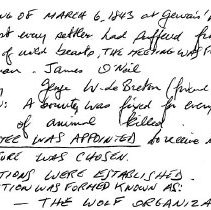 NG OF MARCH 6, 1843 at Gervais'
st every settler had suffered fr
of wild beasts, THE MEETING WAS
man. James O'Neil
y George W. Le Breton (friend
N: A bounty was fixed for every
of animal killed.
TEE WAS APPOINTED to receive
TURE WAS CHOSEN.
TIONS WERE ESTABLISHED
TION WAS FORMED KNOWN AS:
— THE WOLF ORGANIZA